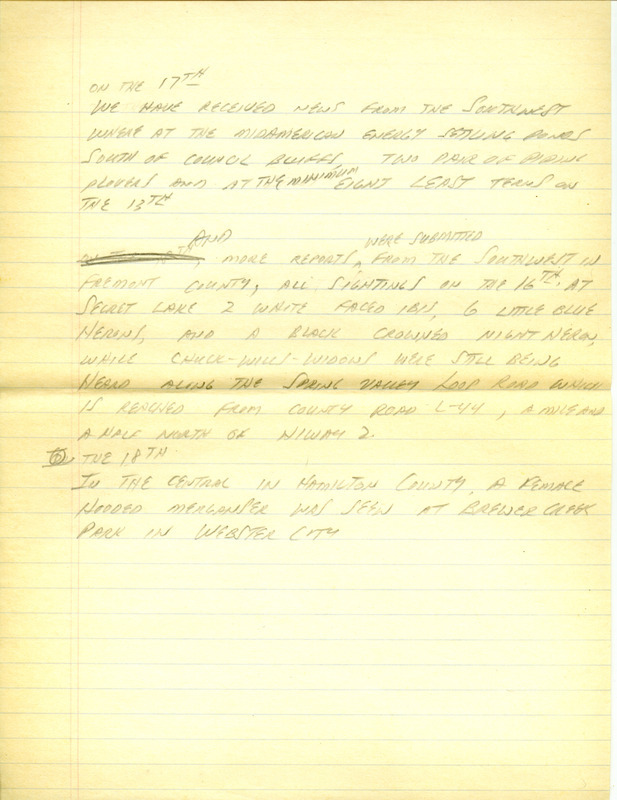 ON THE 17TH
WE HAVE RECEIVED NEWS FROM THE SOUTHWEST
WHERE AT THE MIDAMERICAN ENERGY SETTLING PONDS
SOUTH OF COUNCIL BLUFFS, TWO PAIR OF PIPING
PLOVERS AND AT THE MINIMUM EIGHT LEAST TERNS ON
THE 13TH
AND MORE REPORTS, WERE SUBMITTED FROM THE SOUTHWEST IN
FREMONT COUNTY, ALL SIGHTINGS ON THE 16TH. AT
SECRET LAKE 2 WHITE FACED IBIS, 6 LITTLE BLUE
HERONS, AND A BLACK CROWNED NIGHT HERON,
WHILE CHUCK-WILLS-WIDOWS WERE STILL BEING
HEARD ALONG THE SPRING VALLEY LOOP ROAD WHICH
IS REACHED FROM COUNTY ROAD L-44, A MILE AND
A HALF NORTH OF HIWAY 2.
THE 18TH
IN THE CENTRAL IN HAMILTON COUNTY, A FEMALE
HOODED MERGANSER WAS SEEN AT BREWER CREEK
PARK IN WEBSTER CITY